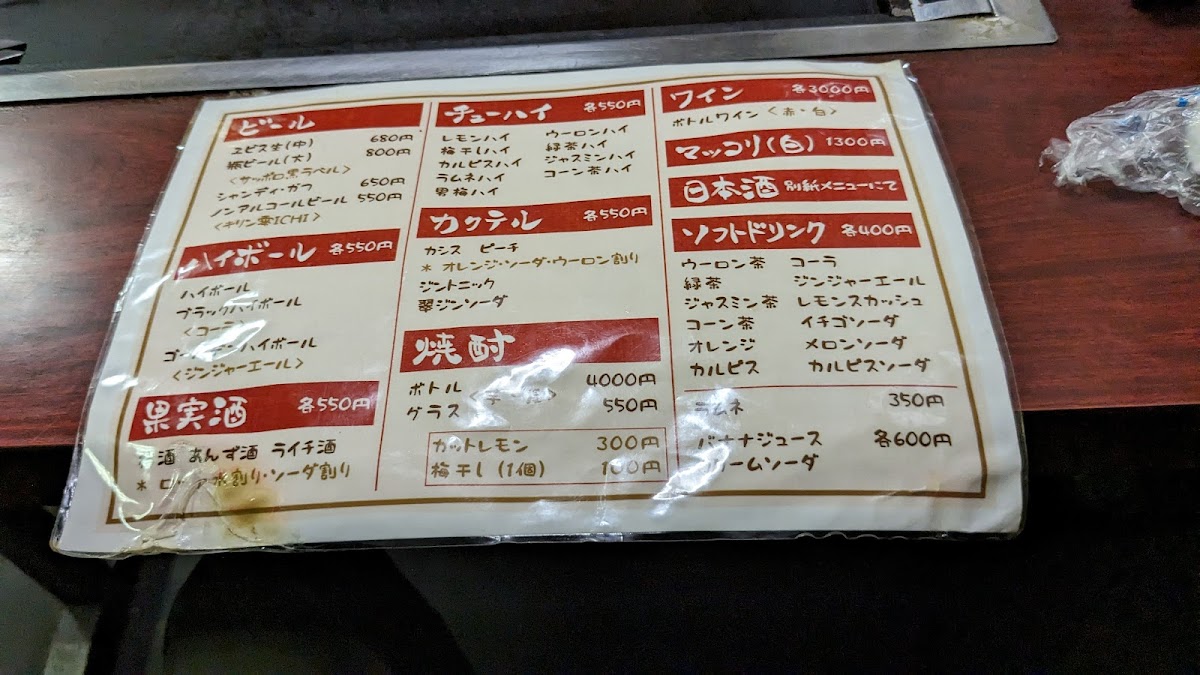 ビール
ヱビス生(中) 680円
瓶ビール(大) 800円
<サッポロ黒ラベル>
シャンディ・ガフ 650円
ノンアルコールビール 550円
<キリン零ICHI>
ハイボール 各550円
ハイボール
ブラックハイボール
<コーラ>
ハイボール
<ジンジャーエール>
果実酒 各550円
酒 あんず酒 ライチ酒
* 水割り・ソーダ割り
チューハイ 各550円
レモンハイ ウーロンハイ
梅干しハイ 緑茶ハイ
カルピスハイ ジャスミンハイ
ラムネハイ コーン茶ハイ
男梅ハイ
カクテル 各550円
カシス ピーチ
* オレンジ・ソーダ・ウーロン割り
ジントニック
翠ジンソーダ
焼酎
ボトル 4000円
グラス 550円
カットレモン 300円
梅干し(1個) 100円
ワイン 各3000円
ボトルワイン <赤・白>
マッコリ(白) 1300円
日本酒 別紙メニューにて
ソフトドリンク 各400円
ウーロン茶 コーラ
緑茶 ジンジャーエール
ジャスミン茶 レモンスカッシュ
コーン茶 イチゴソーダ
オレンジ メロンソーダ
カルピス カルピスソーダ
ラムネ 350円
バナナジュース 各600円
クリームソーダ